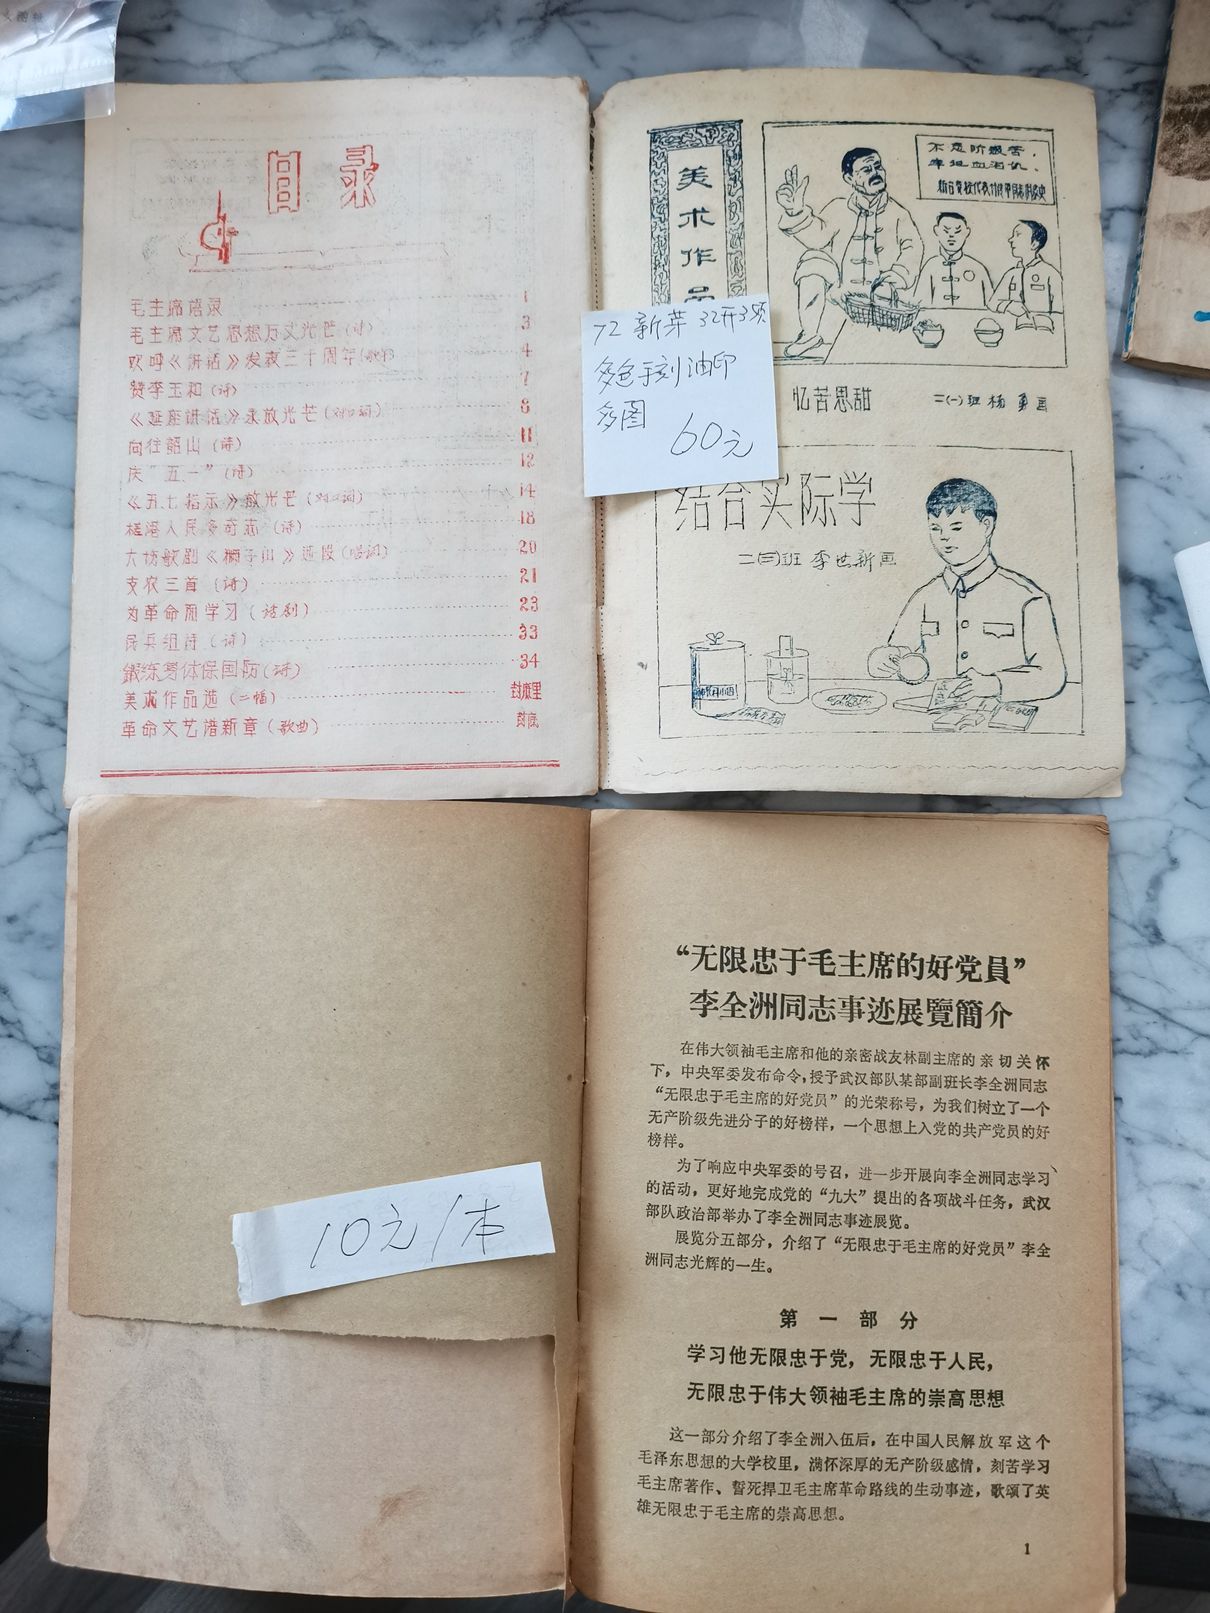 目录
毛主席语录 1
毛主席文艺思想万丈光芒(诗) 3
欢呼《讲话》发表三十周年(歌) 4
赞李玉和(诗) 7
《延座讲话》永放光芒(对口词) 8
向往韶山(诗) 11
庆“五一”(诗) 12
《五七指示》放光芒(对口词) 14
人民多奇志(诗) 18
大访歌剧《狮子山》选段(唱词) 20
支农三首(诗) 21
为革命而学习(话剧) 23
民兵组诗(诗) 33
锻练身体保国防(诗) 34
美术作品选(二幅) 封底里
革命文艺谱新章(歌曲) 封底
美术作品
不忘阶级苦,
牢记血泪仇,
72 新芽 32开3项
多色手刻油印
多图
60元
忆苦思甜 二(一)班 杨勇画
结合实际学
二(三)班 李世新画
10元/本
“无限忠于毛主席的好党員”
李全洲同志事迹展覽簡介
在伟大领袖毛主席和他的亲密战友林副主席的亲切关怀
下,中央军委发布命令,授予武汉部队某部副班长李全洲同志
“无限忠于毛主席的好党员”的光荣称号,为我们树立了一个
无产阶级先进分子的好榜样,一个思想上入党的共产党员的好
榜样。
为了响应中央军委的号召,进一步开展向李全洲同志学习
的活动,更好地完成党的“九大”提出的各项战斗任务,武汉
部队政治部举办了李全洲同志事迹展览。
展览分五部分,介绍了“无限忠于毛主席的好党员”李全
洲同志光辉的一生。
第一部分
学习他无限忠于党,无限忠于人民,
无限忠于伟大领袖毛主席的崇高思想
这一部分介绍了李全洲入伍后,在中国人民解放军这个
毛泽东思想的大学校里,满怀深厚的无产阶级感情,刻苦学习
毛主席著作、誓死捍卫毛主席革命路线的生动事迹,歌颂了英
雄无限忠于毛主席的崇高思想。
1